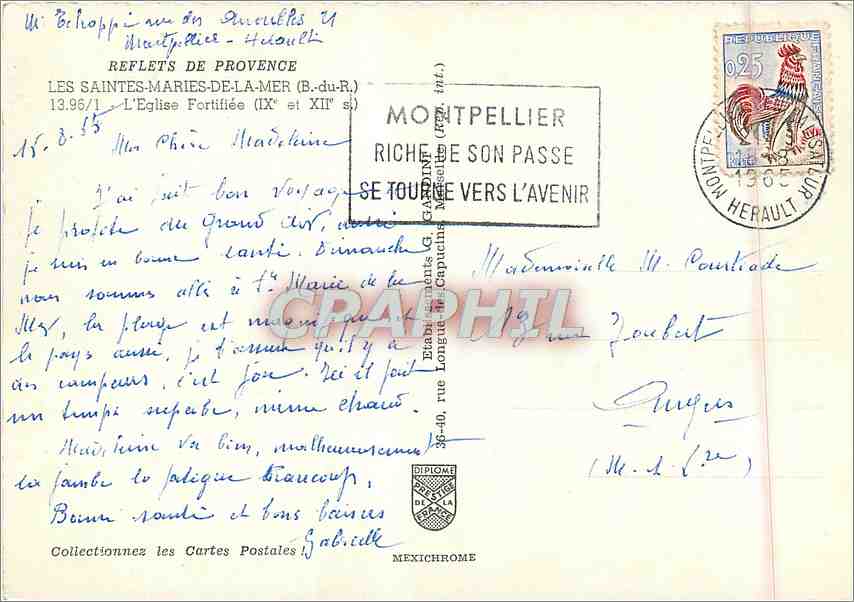 Montpellier - Hérault
REFLETS DE PROVENCE
LES SAINTES-MARIES-DE-LA-MER (B.-du-R.)
13.96/1 - L'Eglise Fortifiée (IXe et XIIe s.)
15-8-65
Ma Chère Madeleine
J'ai fait bon voyage
je profite du Grand air,
je suis en bonne santé. Dimanche
nous sommes allé à Ste Marie de la
Mer, la plage est magnifique et
le pays aussi, je t'assure qu'il y a
des campeurs, c'est fou. Ici il fait
un temps superbe, même chaud.
Madeleine va bien, malheureusement
la jambe la fatigue beaucoup,
Bonne santé et bons baisers
Gabrielle
Collectionnez les Cartes Postales !
Etablissements G. GANDINI
36-40, rue Longue-des-Capucins, Marseille (Rep. int.)
DIPLOME
PRESTIGE
DE LA
FRANCE
MEXICHROME
MONTPELLIER
RICHE DE SON PASSE
SE TOURNE VERS L'AVENIR
REPUBLIQUE FRANÇAISE
0,25
1965
HERAULT
Mademoiselle M. Courtiade
Joubert
Angers
(M. et Lre)
CPAPHIL